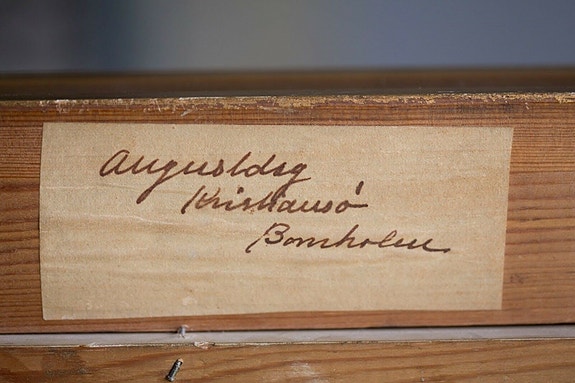 Augustdag
Kristiansö
Bornholm.